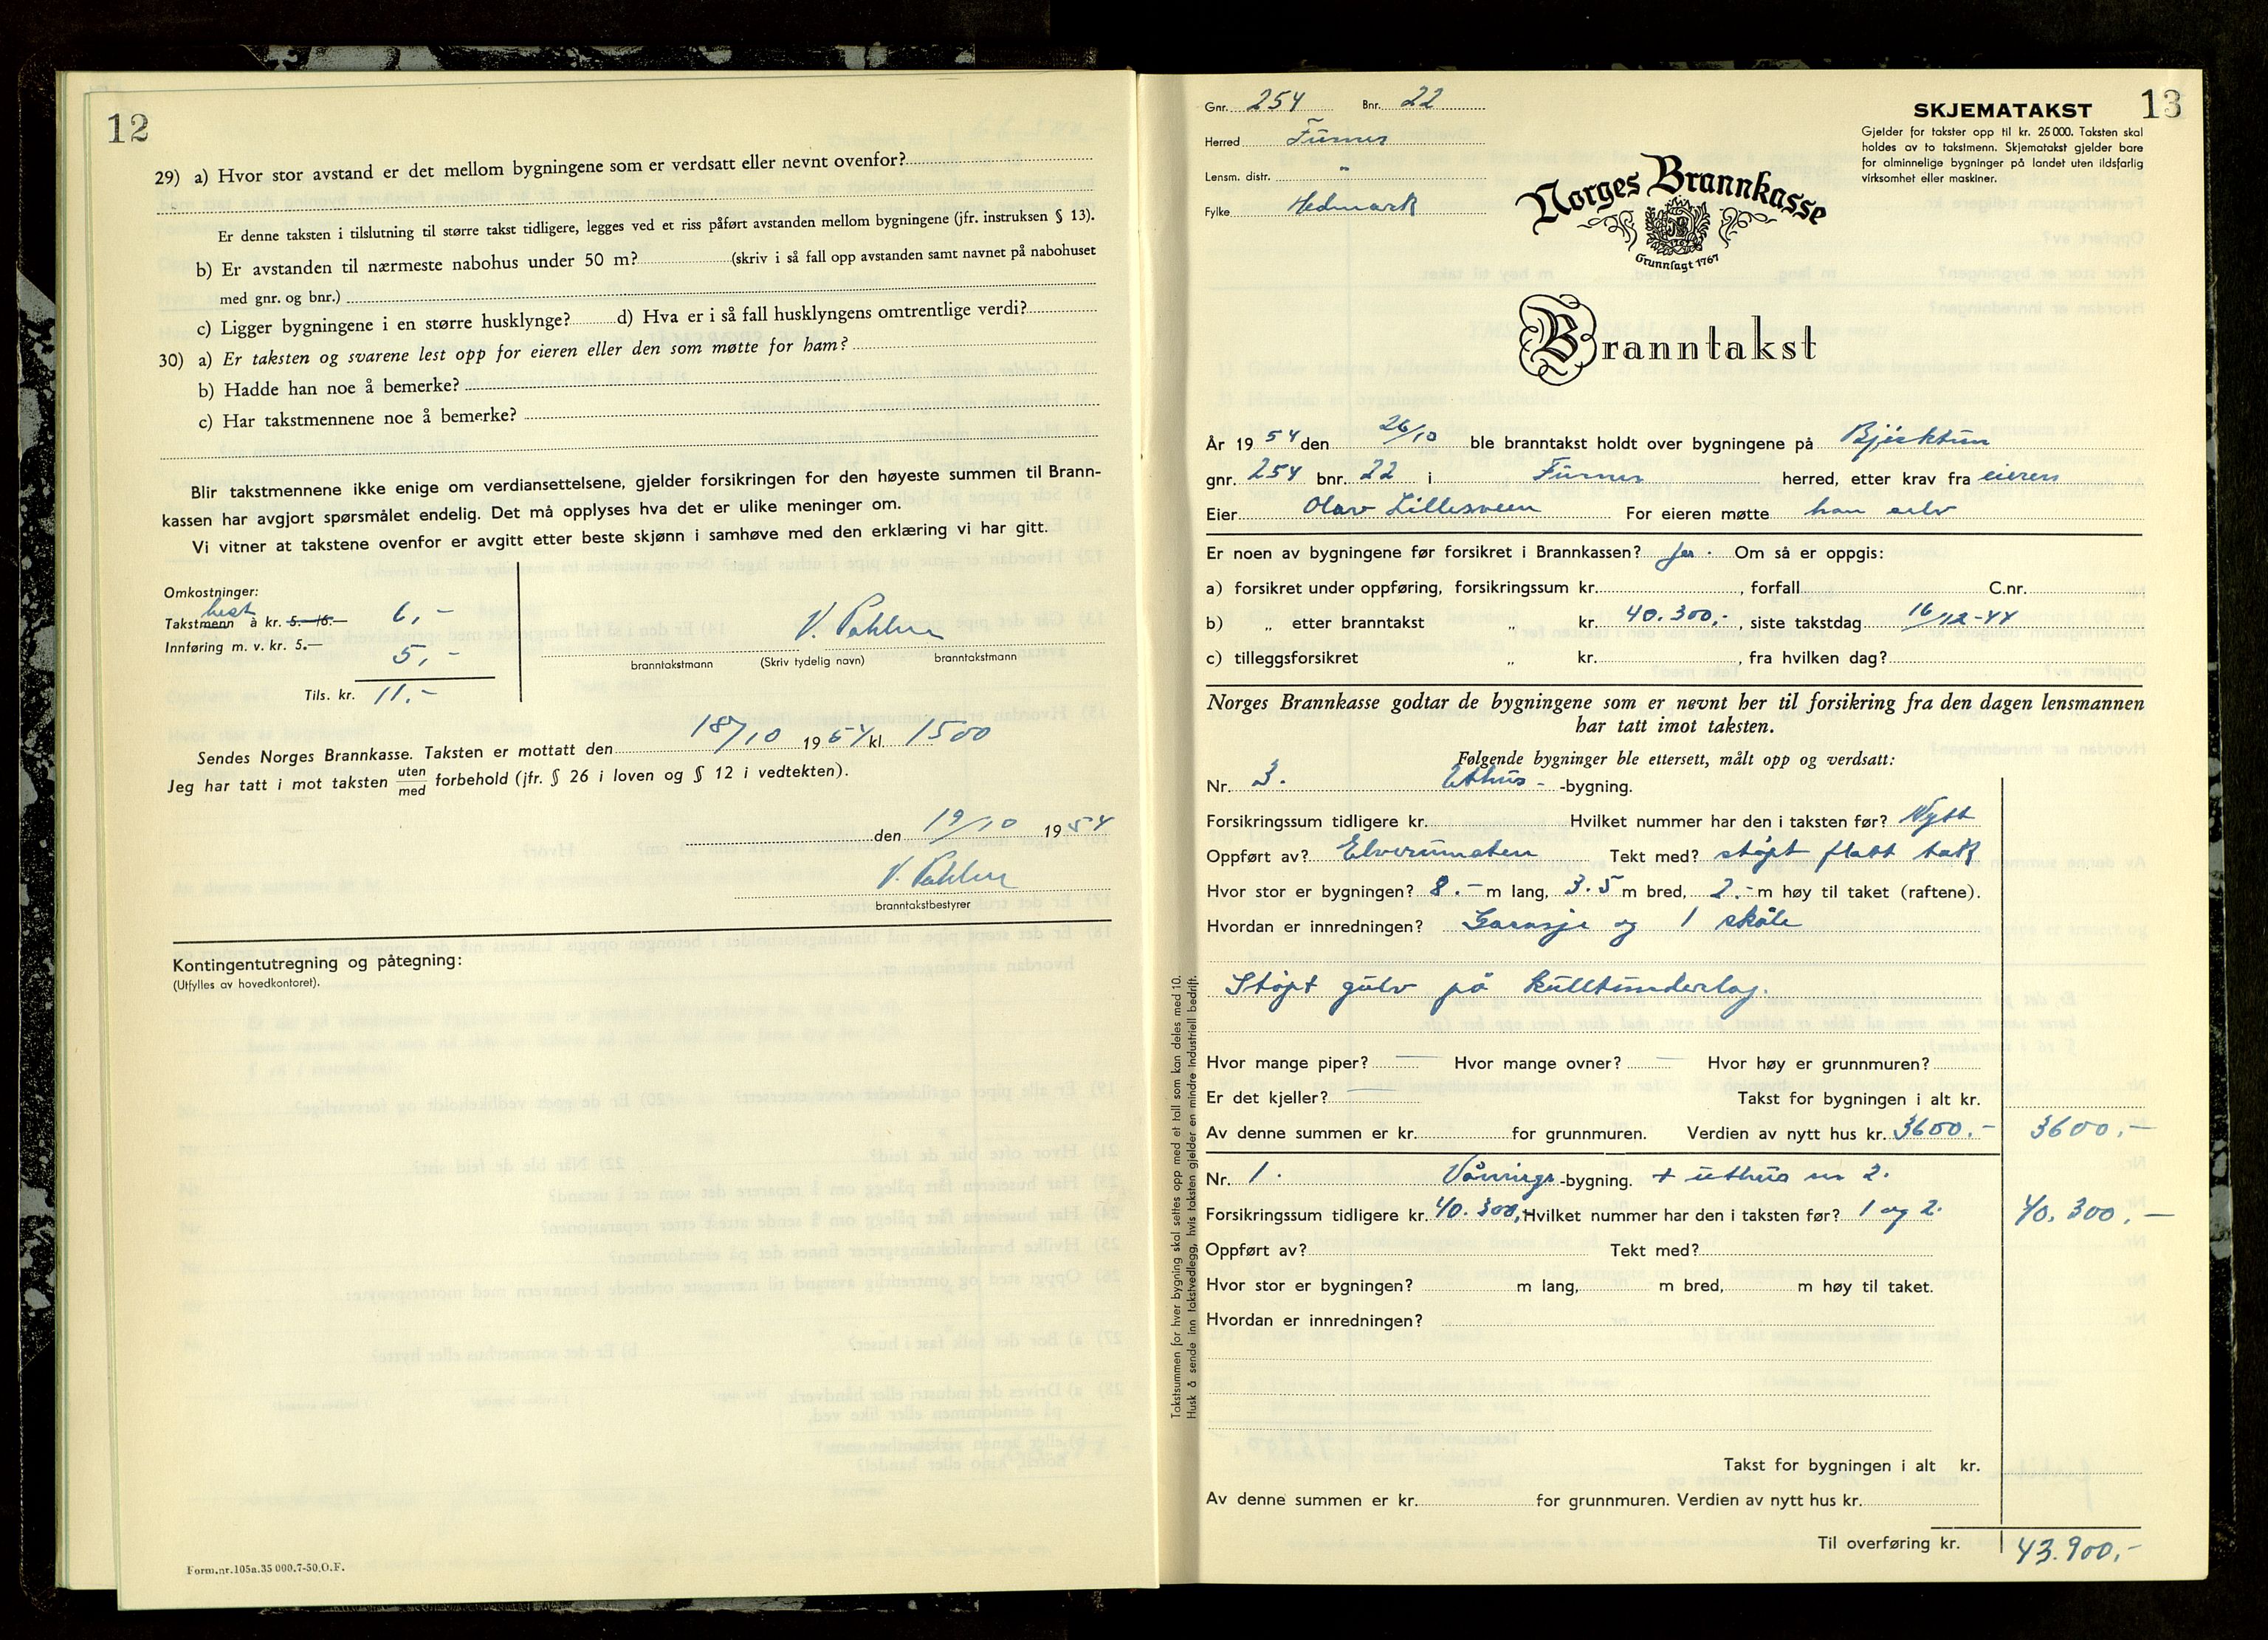 12
29) a) Hvor stor avstand er det mellom bygningene som er verdsatt eller nevnt ovenfor?
Er denne taksten i tilslutning til større takst tidligere, legges ved et riss påført avstanden mellom bygningene (jfr. instruksen § 13).
b) Er avstanden til nærmeste nabohus under 50 m? (skriv i så fall opp avstanden samt navnet på nabohuset
med gnr. og bnr.)
c) Ligger bygningene i en større husklynge? d) Hva er i så fall husklyngens omtrentlige verdi?
30) a) Er taksten og svarene lest opp for eieren eller den som møtte for ham?
b) Hadde han noe å bemerke?
c) Har takstmennene noe å bemerke?
Blir takstmennene ikke enige om verdiansettelsene, gjelder forsikringen for den høyeste summen til Brann-
kassen har avgjort spørsmålet endelig. Det må opplyses hva det er ulike meninger om.
Vi vitner at takstene ovenfor er avgitt etter beste skjønn i samhøve med den erklæring vi har gitt.
Omkostninger:
best
Takstmenn à kr. 5.— 6.— 6,-
Innføring m. v. kr. 5.— 5,-
Tils. kr. 11.-
V. Pahlm
branntakstmann (Skriv tydelig navn) branntakstmann
Sendes Norges Brannkasse. Taksten er mottatt den 18/10 1954 kl. 1500
Jeg har tatt i mot taksten uten/med forbehold (jfr. § 26 i loven og § 12 i vedtekten).
den 19/10 1954
V. Pahlm
branntakstbestyrer
Kontingentutregning og påtegning:
(Utfylles av hovedkontoret).
Form.nr.105a.35 000.7-50.O.F.
13
Gnr. 254 Bnr. 22
Herred Furnes
Lensm. distr. "
Fylke Hedmark
SKJEMATAKST
Gjelder for takster opp til kr. 25 000. Taksten skal
holdes av to takstmenn. Skjematakst gjelder bare
for alminnelige bygninger på landet uten ildsfarlig
virksomhet eller maskiner.
Norges Brannkasse
Grunnlagt 1767
Branntakst
År 1954 den 26/10 ble branntakst holdt over bygningene på Bjerktun
gnr. 254 bnr. 22 i Furnes herred, etter krav fra eieren
Eier Olav Lillesveen For eieren møtte han selv
Er noen av bygningene før forsikret i Brannkassen? ja. Om så er oppgis:
a) forsikret under oppføring, forsikringssum kr. , forfall C.nr.
b) „ etter branntakst „ kr. 40.300,- , siste takstdag 16/12-44
c) tilleggsforsikret „ kr. , fra hvilken dag?
Norges Brannkasse godtar de bygningene som er nevnt her til forsikring fra den dagen lensmannen
har tatt imot taksten.
Følgende bygninger ble ettersett, målt opp og verdsatt:
Nr. 3. Uthus - -bygning.
Forsikringssum tidligere kr. Hvilket nummer har den i taksten før? Nytt
Oppført av? Elverumsten Tekt med? støpt flatt tak
Hvor stor er bygningen? 8.- m lang, 3.5 m bred, 2.- m høy til taket (raftene).
Hvordan er innredningen? Garasje og 1 skåle
Støpt gulv på kultunderlag.
Hvor mange piper? — Hvor mange ovner? — Hvor høy er grunnmuren?
Er det kjeller? — Takst for bygningen i alt kr.
Av denne summen er kr. for grunnmuren. Verdien av nytt hus kr. 3600.- 3600,-
Nr. 1. Vånings-bygning. + uthus nr 2.
Forsikringssum tidligere kr. 40.300,- Hvilket nummer har den i taksten før? 1 og 2. 40.300,-
Oppført av? Tekt med?
Hvor stor er bygningen? m lang, m bred, m høy til taket.
Hvordan er innredningen?
Takst for bygningen i alt kr.
Av denne summen er kr. for grunnmuren. Verdien av nytt hus kr.
Til overføring kr. 43.900,-
Takstsummen for hver bygning skal settes opp med et tall som kan deles med 10.
Husk å sende inn takstvedlegg, hvis taksten gjelder en mindre industriell bedrift.